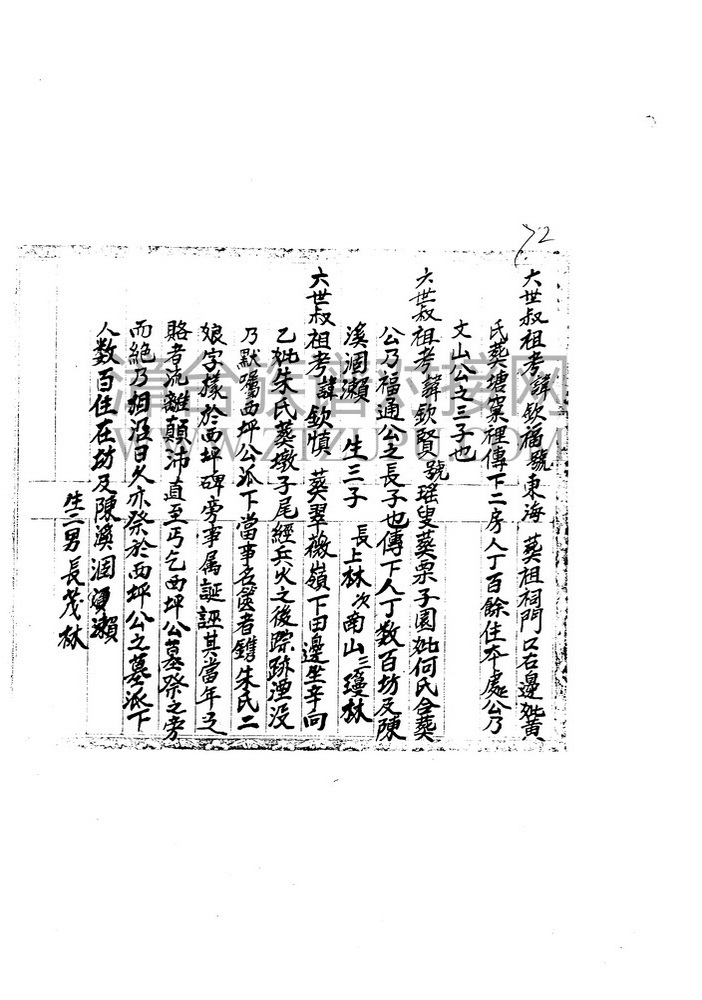 72
六世叔祖考諱欽福號東海 葬祖祠門口右邊妣黃
氏葬塘窠裡傳下二房人丁百餘住本處公乃
文山公之三子也
六世叔祖考諱欽賢號瑶叟葬栗子園妣何氏合葬
公乃福通公之長子也傳下人丁数百坊及陳
溪涸瀨 生三子 長上林次南山三瓊林
六世叔祖考諱欽慎 葬翠薇嶺下田邊坐辛向
乙妣朱氏葬墩子尾經兵火之後踪跡湮没
乃默囑西坪公派下當事名 者鐫朱氏二
娘字樣於西坪碑旁事属誕誣其當年 
賂者流離顛沛直至丐乞西坪公墓祭之旁
而絶乃相沿日久亦祭於西坪公之墓派下
人数百住在坊及陳溪涸 瀨
生三男長茂林
清合族譜对接网
WWW.ZTZUPU.COM